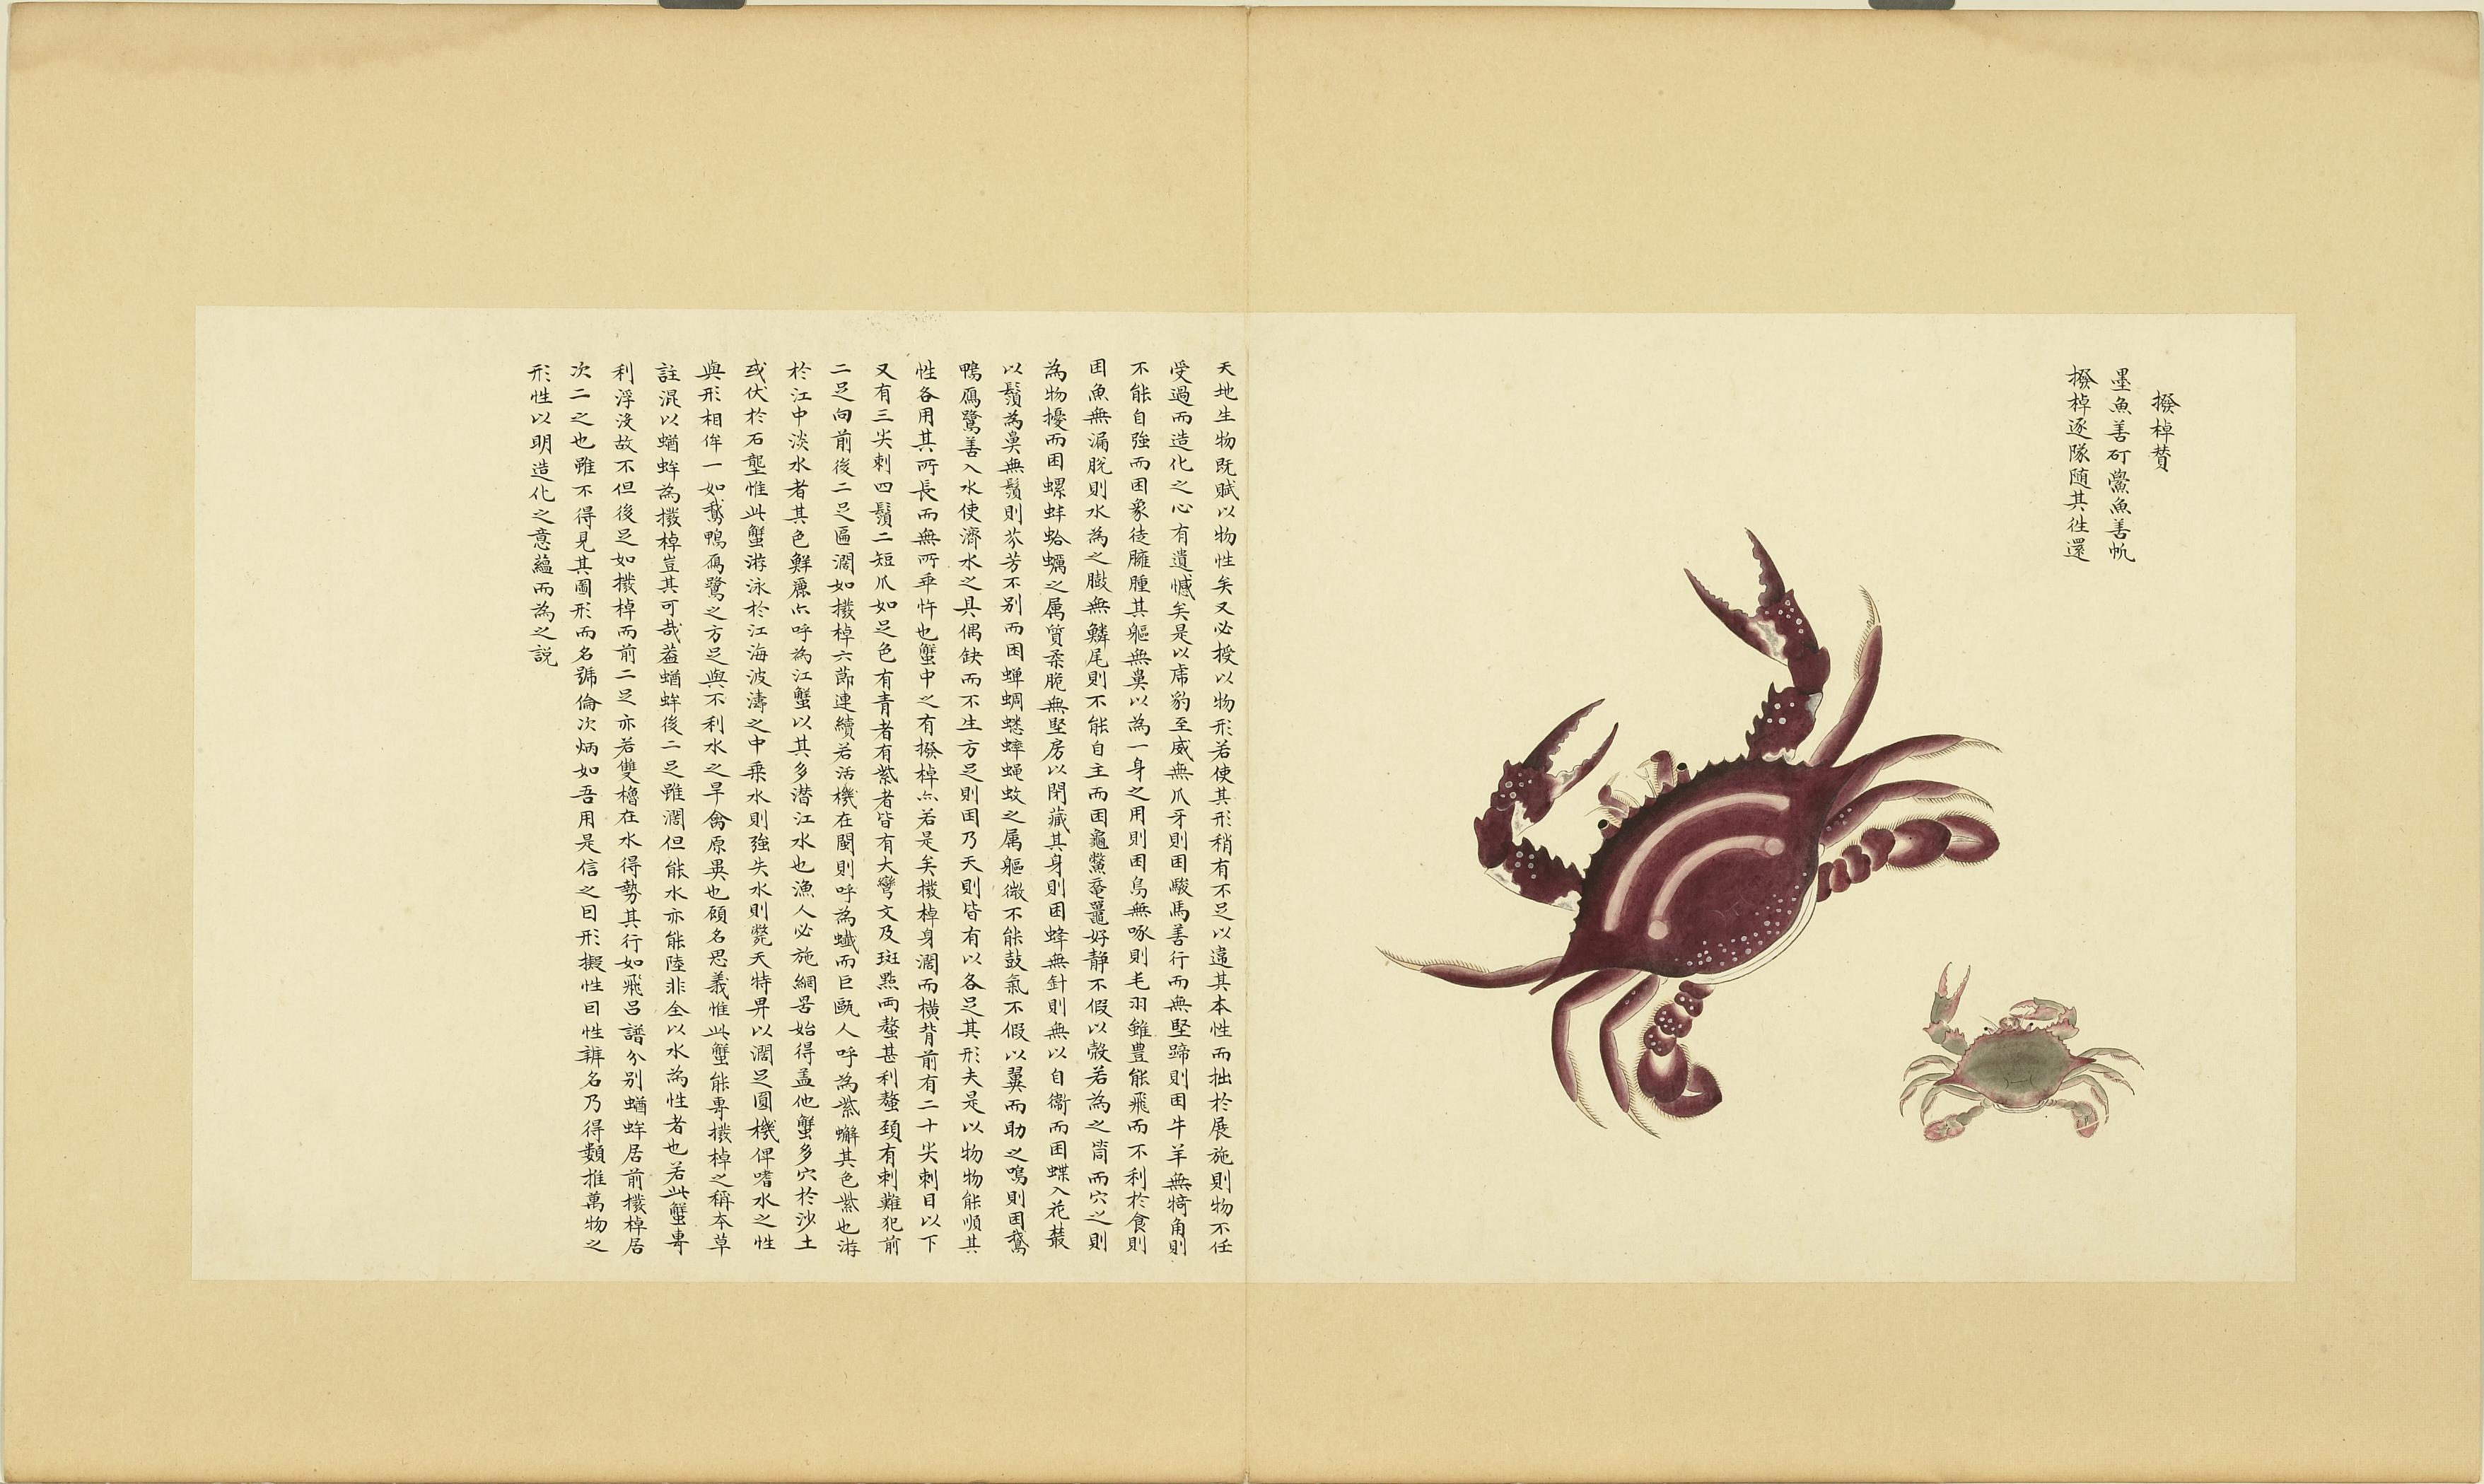 撥棹贊
墨魚善矴鱟魚善帆
撥棹逐隊随其徃還
天地生物既賦以物性矣又必授以物形若使其形稍有不足以違其本性而拙於展施則物不任
受過而造化之心有遺憾矣是以虎豹至威無爪牙則困駿馬善行而無堅蹄則困牛羊無犄角則
不能自強而困象徒臃腫其軀無鼻以為一身之用則困鳥無啄則毛羽雖豊能飛而不利於食則
困魚無漏脫則水為之臌無鱗尾則不能自主而困龜鱉黿鼉好静不假以殼若為之筒而穴之則
為物擾而困螺蚌蛤蠣之属質柔脆無堅房以閉藏其身則困蜂無針則無以自衞而困蝶入花叢
以鬚為鼻無鬚則芬芳不别而困蝉蜩蟋蟀蝇蚊之属軀微不能鼓氣不假以翼而助之鳴則困鵞
鴨鴈鷺善入水使濟水之具偶缺而不生方足則困乃天則皆有以各足其形夫是以物物能順其
性各用其所長而無所乖忤也蟹中之有撥棹亦若是矣撥棹身濶而横背前有二十尖刺目以下
又有三尖刺四鬚二短爪如足色有青者有紫者皆有大彎文及斑㸃兩螯甚利螯頚有刺難犯前
二足向前後二足匾濶如撥棹六莭連續若活機在閩則呼為蠘而巨甌人呼為紫蠏其色紫也游
於江中淡水者其色鮮麗亦呼為江蟹以其多潜江水也漁人必施網罟始得盖他蟹多穴於沙土
或伏於石壟惟此蟹游泳於江海波濤之中乗水則強失水則斃天特畀以濶足圓機俾嗜水之性
與形相侔一如鵞鴨鴈鷺之方足與不利水之旱禽原異也顧名思義惟此蟹能專撥棹之稱本草
註混以蝤蛑為撥棹豈其可哉葢蝤蛑後二足雖濶但能水亦能陸非全以水為性者也若此蟹專
利浮沒故不但後足如撥棹而前二足亦若雙櫓在水得勢其行如飛吕譜分别蝤蛑居前撥棹居
次二之也雖不得見其圖形而名號倫次炳如吾用是信之曰形擬性曰性辨名乃得類推萬物之
形性以明造化之意蘊而為之説